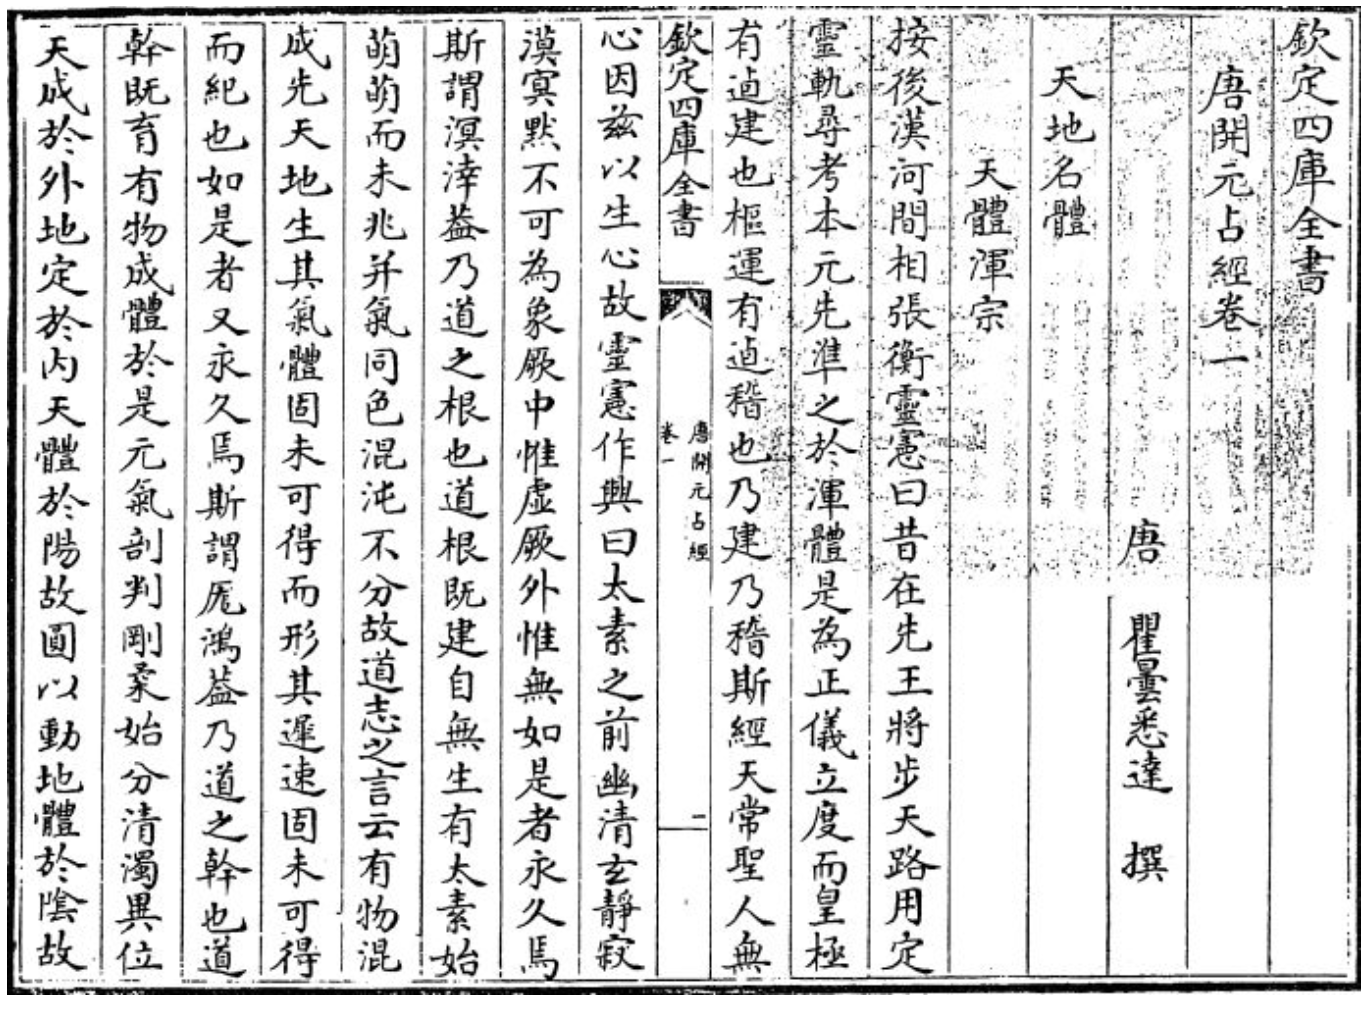 欽定四庫全書
唐開元占經卷一
唐 瞿曇悉達 撰
天地名體
天體渾宗
按後漢河間相張衡靈憲曰昔在先王將步天路用定
靈軌尋考本元先準之於渾體是為正儀立度而皇極
有逌建也樞運有逌稽也乃建乃稽斯經天常聖人無
欽定四庫全書
唐開元占經
卷一
二
心因兹以生心故靈憲作興曰太素之前幽清玄靜寂
漠冥默不可為象厥中惟虛厥外惟無如是者永久焉
斯謂溟涬葢乃道之根也道根既建自無生有太素始
萌萌而未兆并氣同色混沌不分故道志之言云有物混
成先天地生其氣體固未可得而形其遲速固未可得
而紀也如是者又永久焉斯謂厖鴻葢乃道之幹也道
幹既育有物成體於是元氣剖判剛柔始分清濁異位
天成於外地定於内天體於陽故圓以動地體於陰故